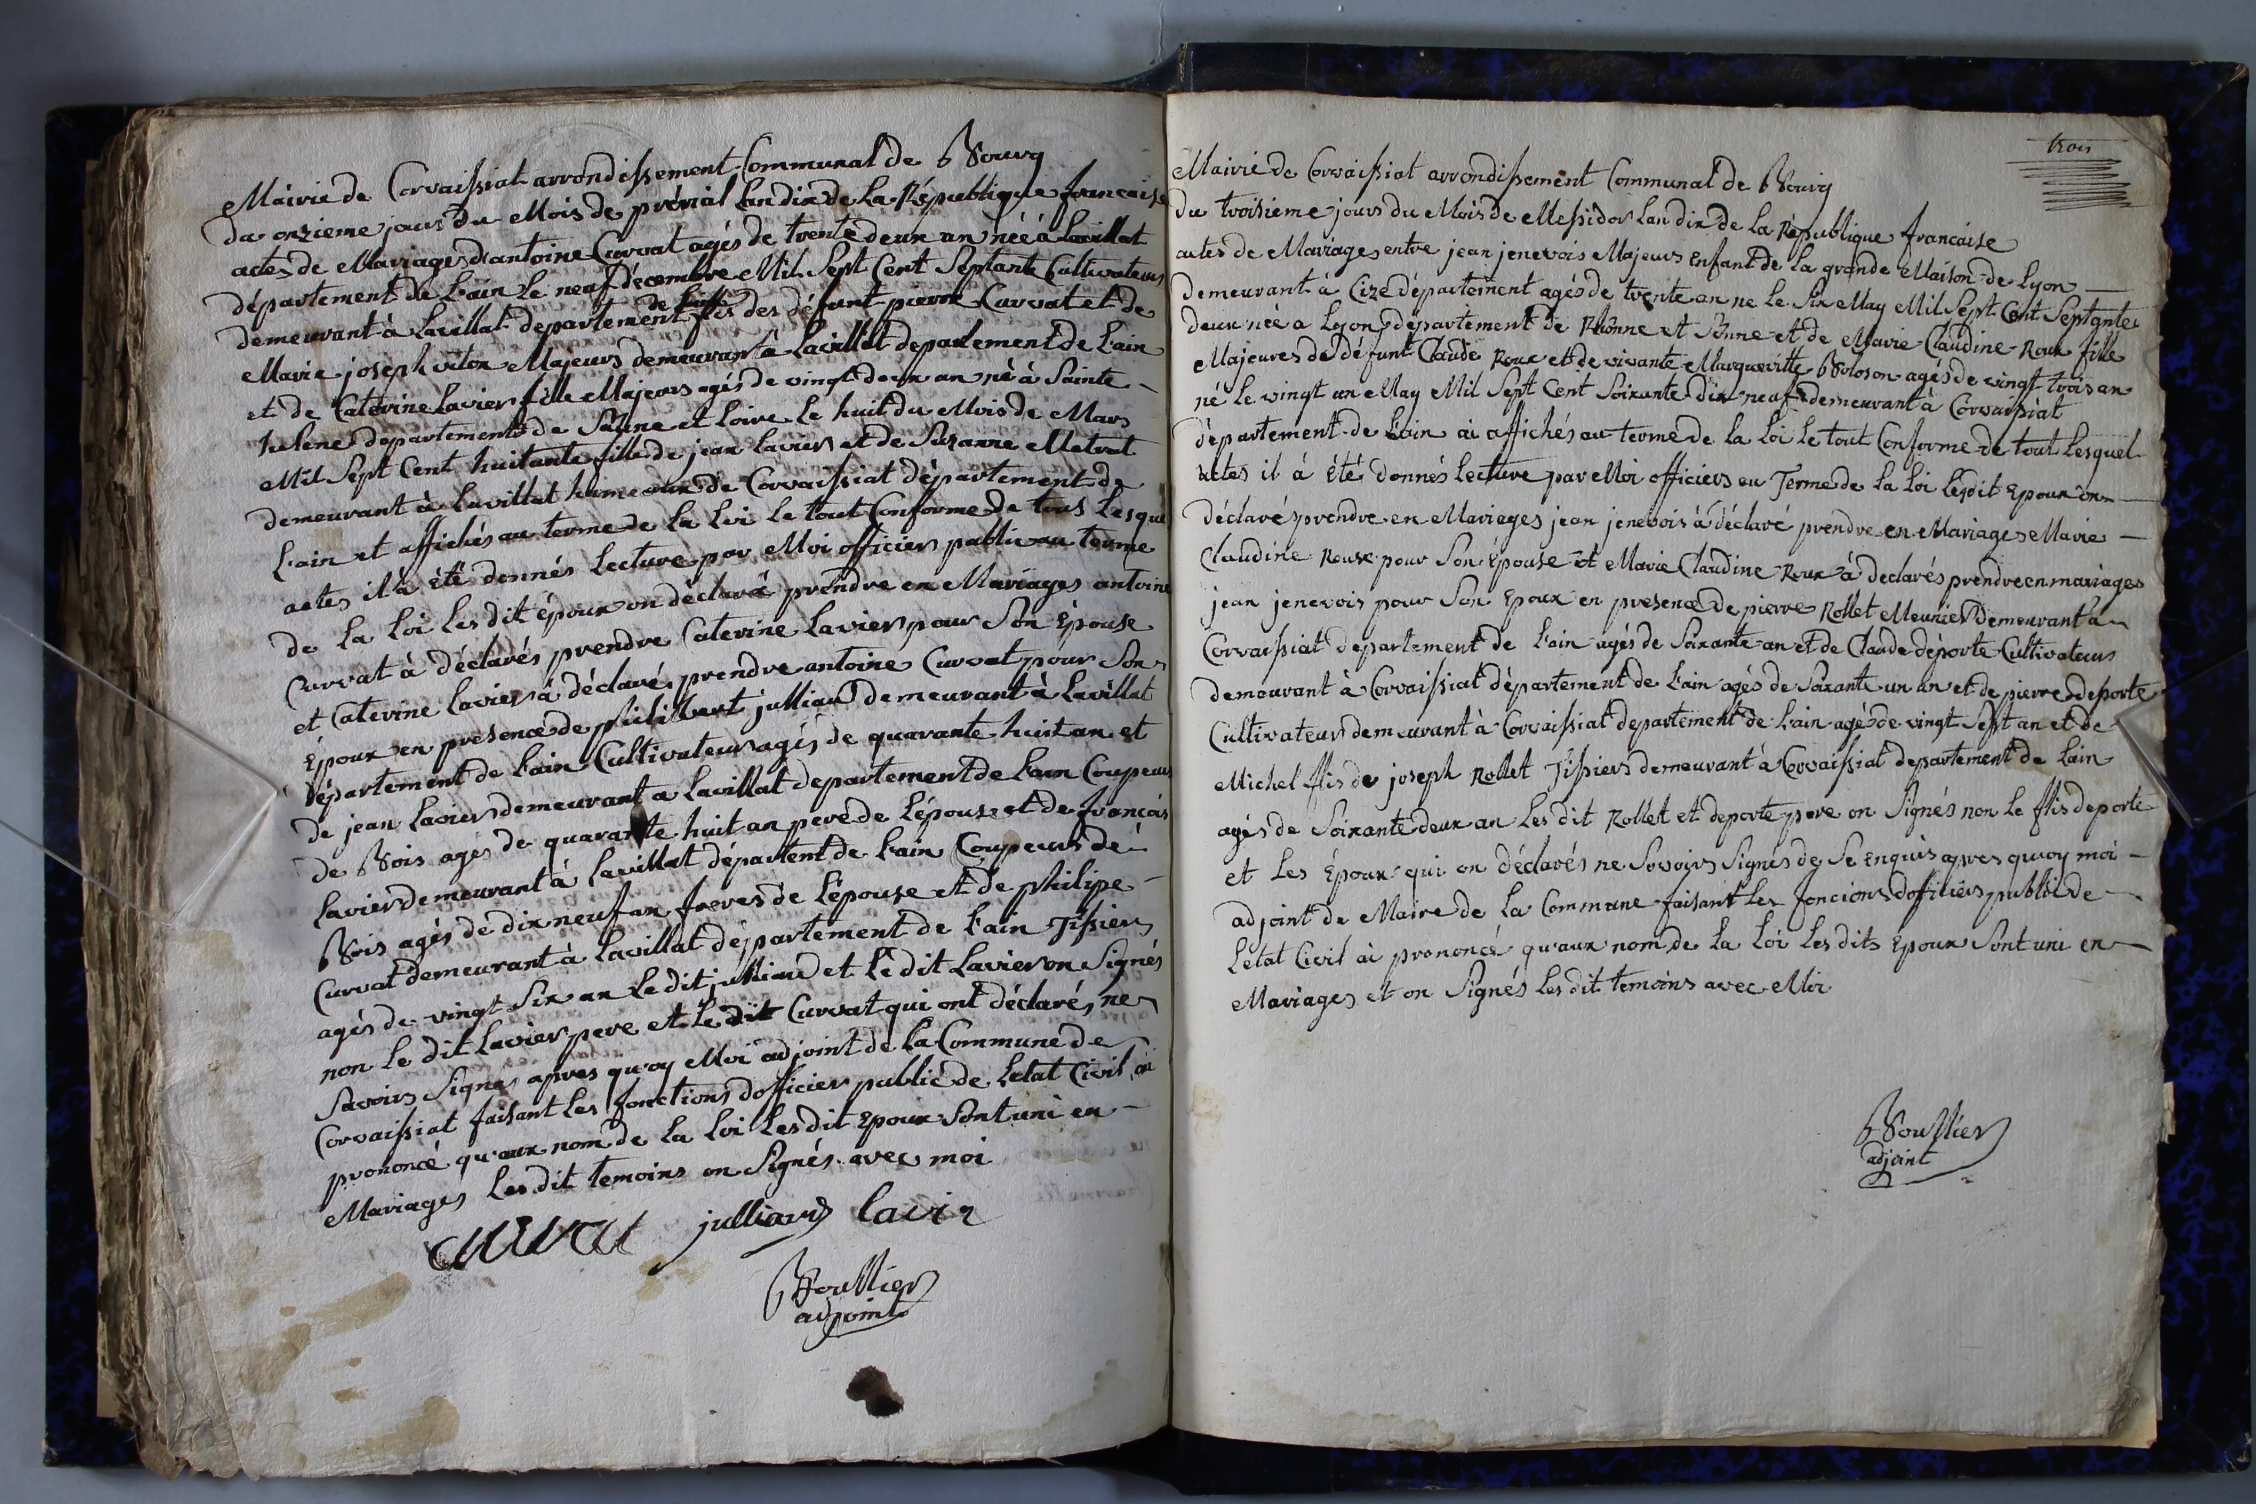 Mairie de Corvaissiat arrondissement Communal de Bourg
du onzieme jours du Mois de prérial Lan dix de La République francaise
actes de Mariages d'antoine Curvat agés de trente deux an née à Lavillat
département de Lain Le neuf décembre Mil Sept Cent Septante Cultivateurs
de Lain
demeurant à Lavillat departement fis des défunt pierre Curvat et de
Marie joseph vitox Majeurs demeurant à Lavillat departement de Lain
et de Caterine Lavier fille Majeurs agés de vingt deux an né à Sainte
helene departement de Saône et Loire Le huit du Mois de Mars
Mil Sept Cent huitante fille de jean Lavier et de Suzanne Metrat
demeurant à Lavillat hameaux de Corvaissiat département de
Lain et affichés au terme de La Loi Le tout Conforme de tous Lesquel
actes il à été donnés Lecture par Moi officiers public au terme
de La Loi Les dit époux on déclaré prendre en Mariages antoine
Curvat à déclarés prendre Caterine Lavier pour Son Épouse
et Caterine Lavier à déclaré prendre antoine Curvat pour Son
Époux en presence de philibert julliard demeurant à Lavillat
département de Lain Cultivateurs agés de quarante huit an et
de jean Lavier demeurant a Lavillat departement de Lain Coupeurs
de Bois agés de quarante huit an pere de Lépouse et de francois
Lavier demeurant à Lavillat départent de Lain Coupeurs de
Bois agés de dix neuf an freres de Lépouse et de philipe
Curvat demeurant à Lavillat département de Lain Tissiers
agés de vingt Six an Le dit julliard et Le dit Lavier on Signés
non Le dit Lavier pere et Le dit Curvat qui ont déclarés ne
Savoirs Signes apres quoy Moi adjoint de La Commune de
Corvaissiat faisant Les fonctions dofficier public de Letat Civil ai
prononcé qu'aux nom de La Loi Les dit Epoux Sont uni en
Mariages Les dit temoins on Signés avec moi
curvat julliard lavir
Boullier
adjoint
trois
Mairie de Corvaissiat arrondissement Communal de Bourg
du troisieme jours du Mois de Messidor Lan dix de La République francaise
actes de Mariages entre jean jenevois Majeurs Enfant de La grande Maison de Lyon
demeurant à Cize département agés de trente an ne Le Six May Mil Sept Cent Septante
deux née a Lyon département de Rhônne et Sônne et de Marie Claudine Roux fille
Majeures de défunt Claude Roux et de vivante Margueritte Boloson agés de vingt trois an
né Le vingt un May Mil Sept Cent Soixante Dix neaf demeurant à Corvaissiat
département de Lain ai affichés au terme de La Loi Le tout Conforme de tout Lesquel
actes il à Été donnés Lecture par Moi officiers au Terme de La Loi Lesdit Epoux on
déclarés prendre en Mariages jean jenevois à déclaré prendre en Mariages Marie
Claudine Rouxe pour Son Épouse et Marie Claudine Roux à declarés prendre en mariages
jean jenevois pour Son Epoux en presence de pierre Rollet Meunier demeurant à
Corvaissiat departement de Lain agés de Soixante an et de Claude déporte Cultivateurs
demeurant à Corvaissiat département de Lain agés de Soixante un an et de pierre deporte
Cultivateurs demeurant à Corvaissiat departement de Lain agés de vingt Sept an et de
Michel ffis de joseph Rollet Tissiers demeurant à Corvaissiat departement de Lain
agés de Soixante deux an Les dit Rollet et deporte pere on Signés non Le ffis deporte
et Les Époux qui on déclarés ne Sovoirs Signés de Se Enquis apres quoy moi
adjoint de Maire de La Commune faisant Les foncions dofficiers public de
Letat Civil ai prononcé qu'aux nom de La Loi Les dits Epoux Sont uni en
Mariages et on Signés Les dit temoins avec Moi
Boullier
adjoint